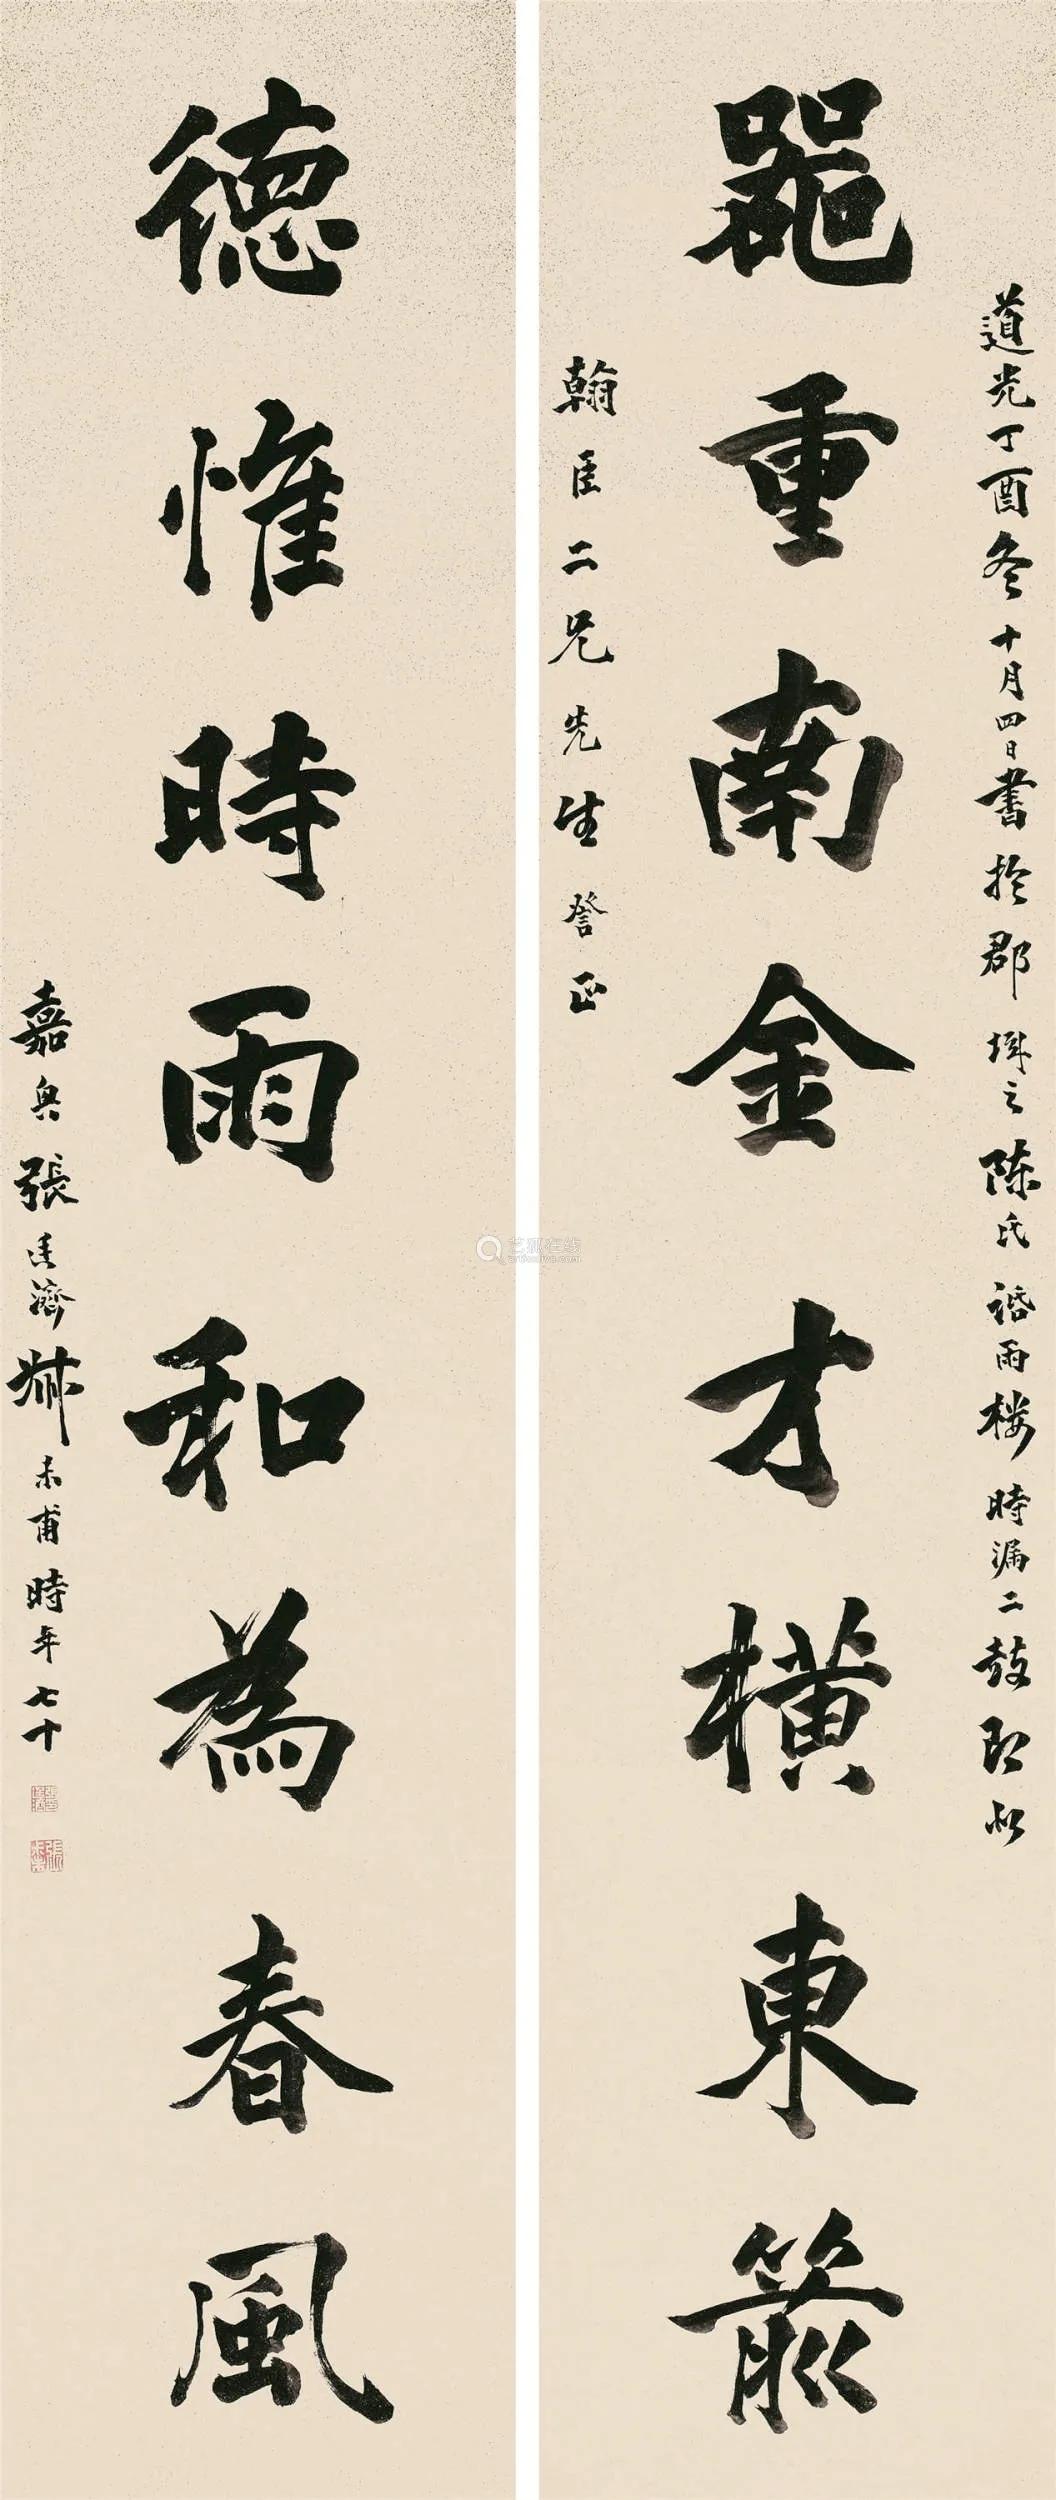 道光丁酉冬十月四日書於郡城之陈氏話雨楼時漏二鼓即次
器重南金才横東箭
翰臣二兄先生詧正
德惟時雨和為春風
嘉興張廷濟尗未甫時年七十
艺狐在线
artfoxlive.com